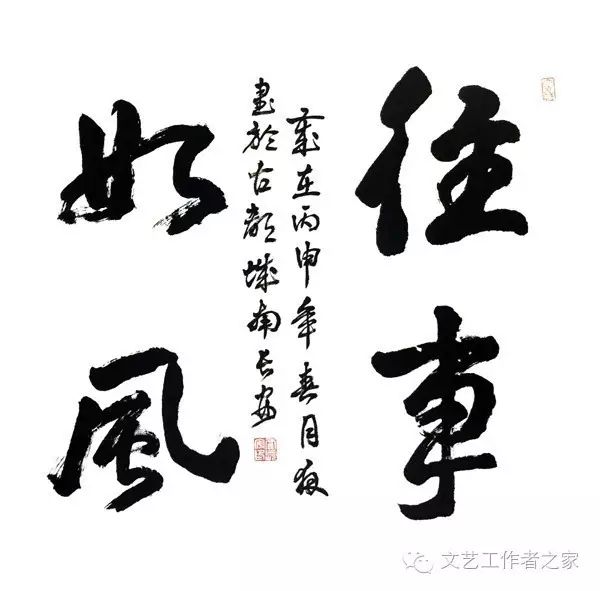 往事
如風
歲在丙申年春月夜
書於古都城南长安
文艺工作者之家